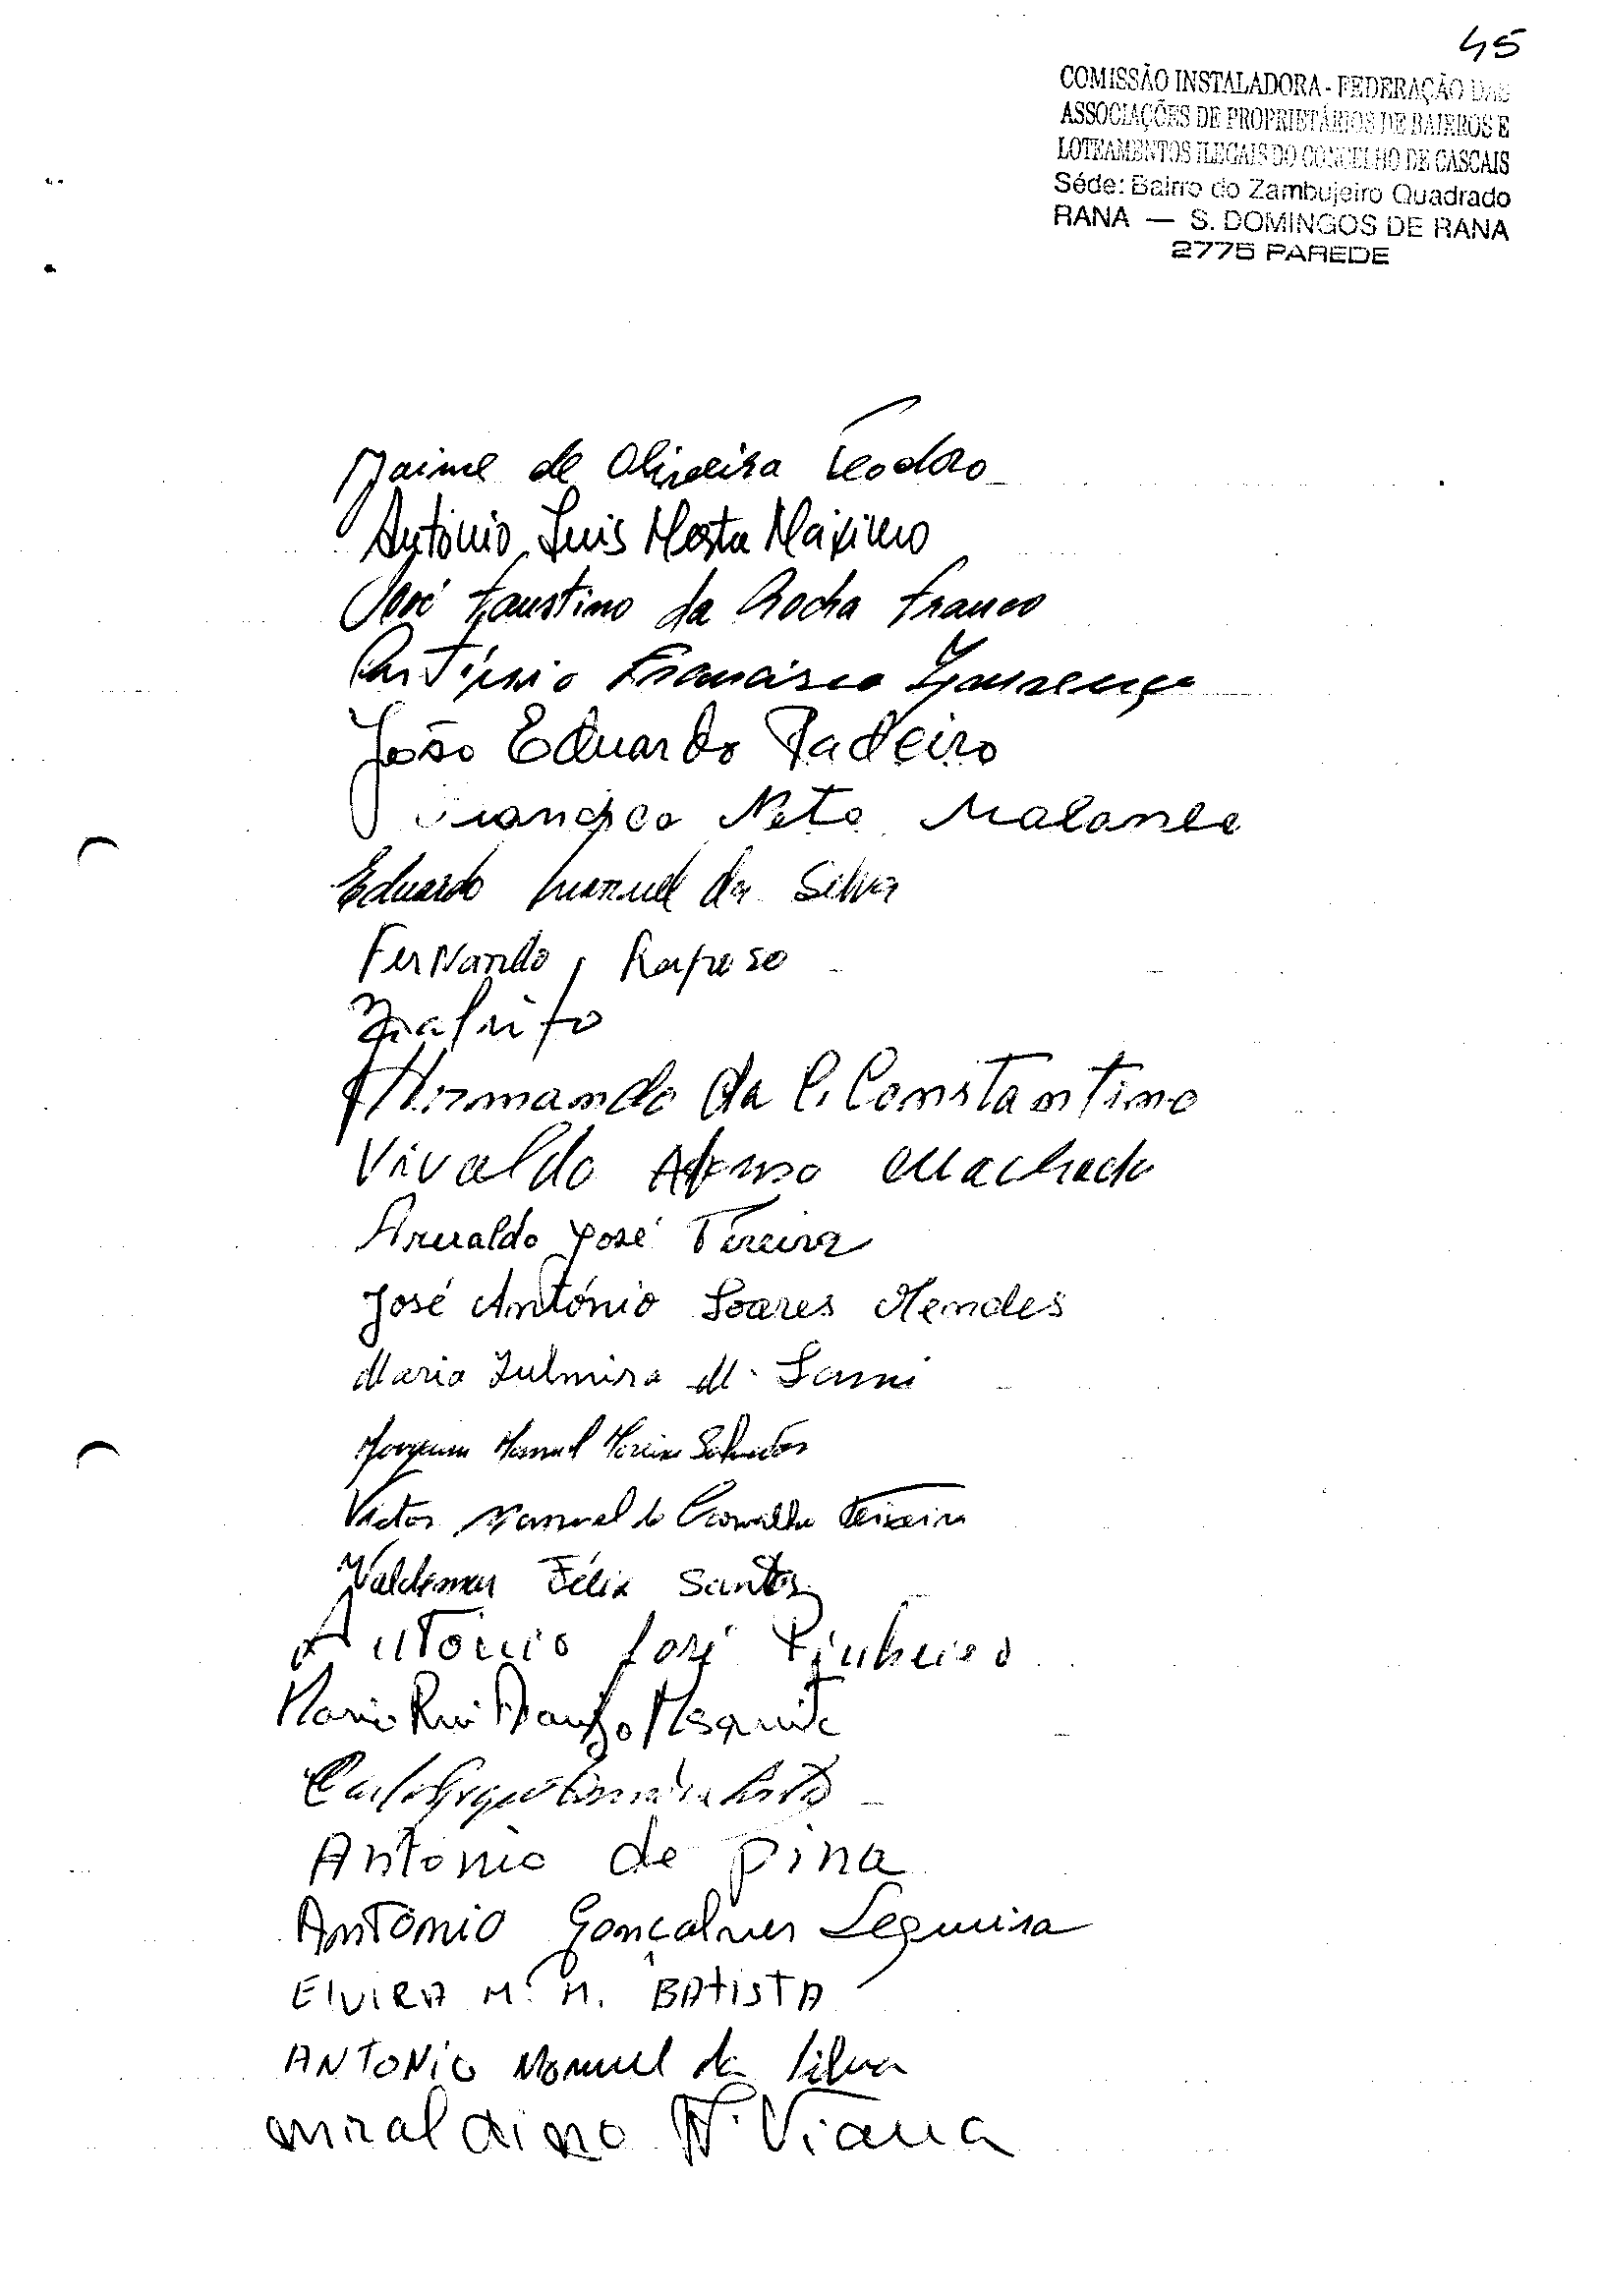 45
COMISSÃO INSTALADORA - FEDERAÇÃO DAS
ASSOCIAÇÕES DE PROPRIETÁRIOS DE BAIRROS E
LOTEAMENTOS ILEGAIS DO CONCELHO DE CASCAIS
Séde: Bairro do Zambujeiro Quadrado
RANA — S. DOMINGOS DE RANA
2775 PAREDE
Jaime de Oliveira Teodoro
António Luis Mosta Máximo
José Faustino da Rocha Franco
António Francisco Lourenço
João Eduardo Padeiro
Francisco Neto Malanle
Eduardo Manuel da Silva
Fernando Raposo
Hermando da C. Constantino
Vivaldo Afonso Machado
Arnaldo José Pereira
José António Soares Mendes
Maria Zulmira M.
Joaquim Manuel Moreira Salvador
Victor Manuel de Carvalho Teixeira
Valdemar Félix Santos
António José Pinheiro
Mario Rui Araujo Mesquita
António de Pina
António Gonçalves Sequeira
Elvira M. M. BAtistA
ANTONio Manuel da Silva
Viana